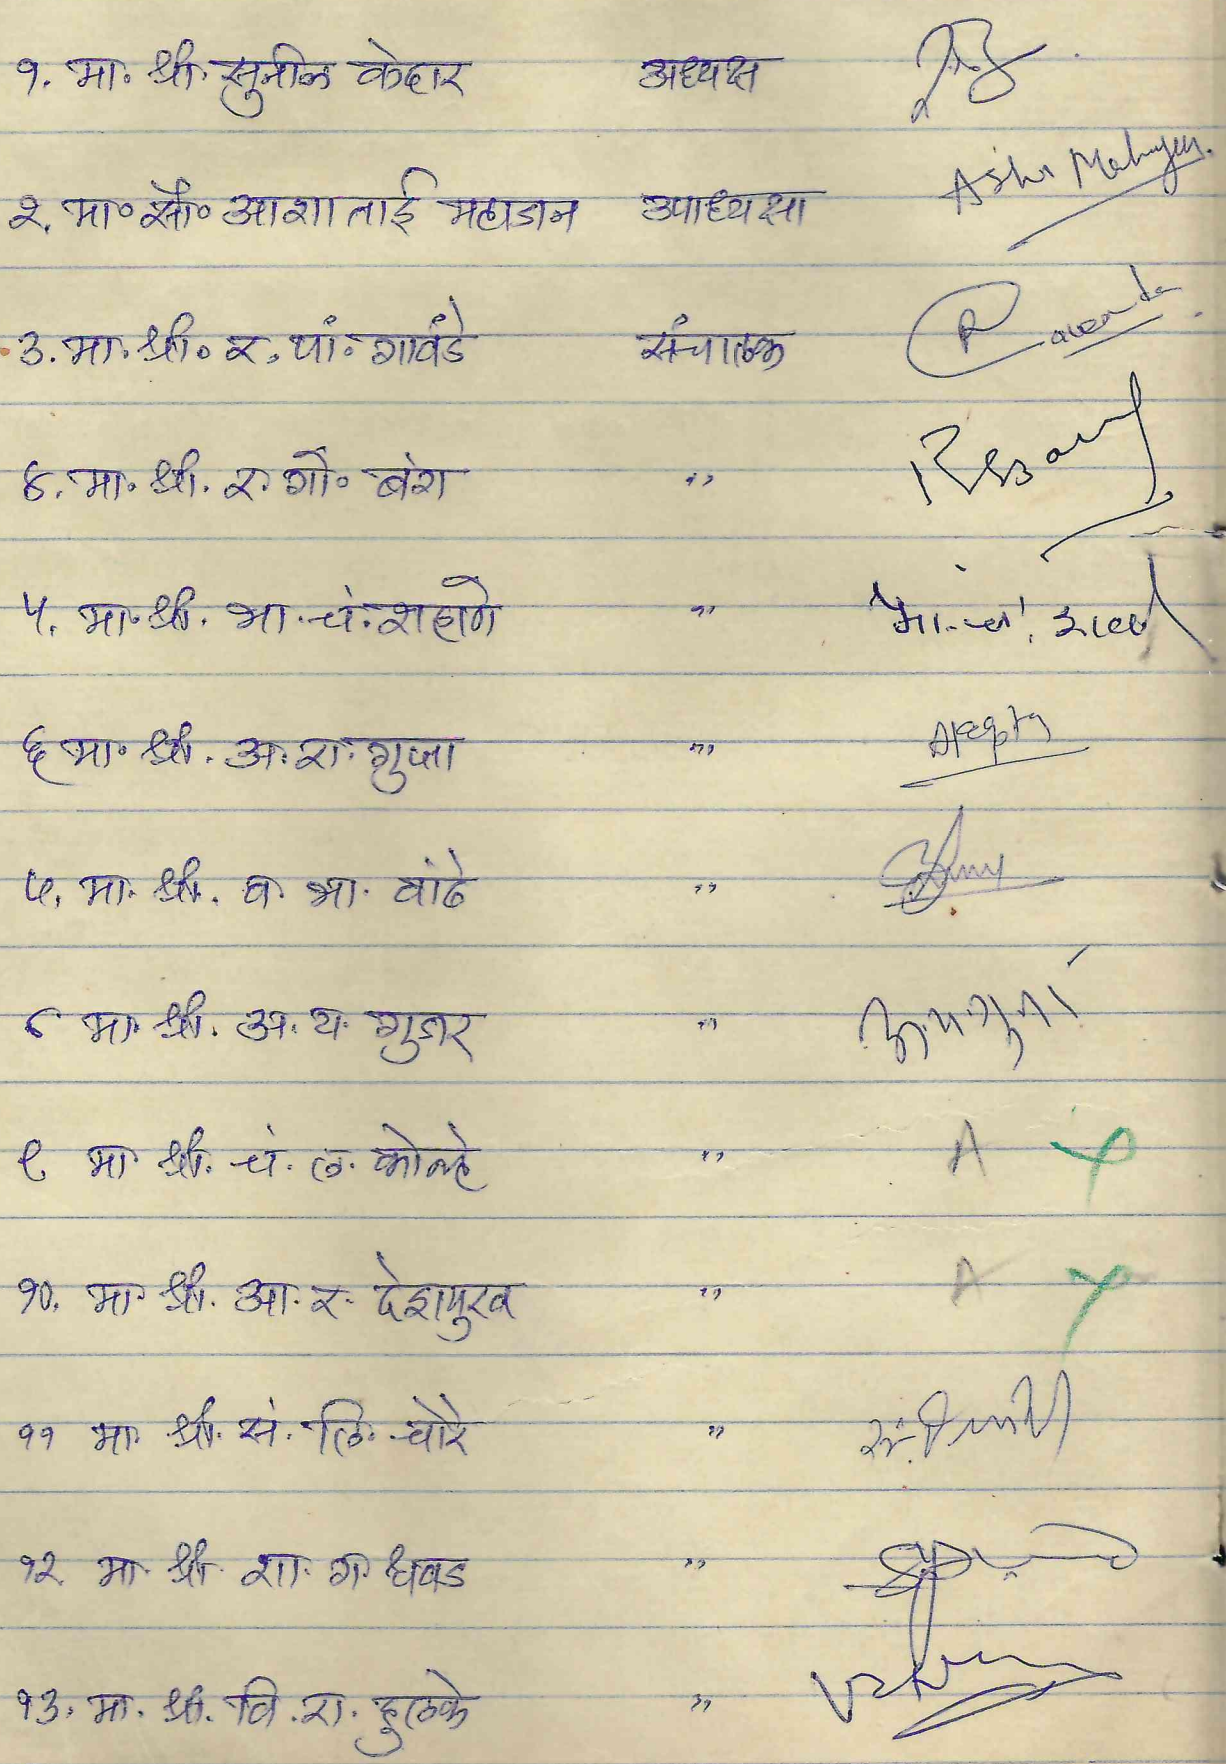 १. मा. श्री. सुनील केदार अध्यक्ष
२. मा॰ सौ॰ आशाताई महाजन उपाध्यक्षा Asha
३. मा. श्री॰ र. पां. गावंडे संचालक
४. मा. श्री. र. गो॰ बंश "
५. मा. श्री. भा. चं. शहाणे " भा. चं.
६ मा॰ श्री. अ. रा. गुप्ता " Agupta
७. मा. श्री. व. भा. वांढे "
८ मा. श्री. अ. य. गुजर "
९ मा श्री. चं. ल. कोल्हे " A
१०. मा. श्री. आ. र. देशमुख " A
११ मा. श्री. सं. लि. चोरे "
१२ मा. श्री. शा. ग. धवड "
१३. मा. श्री. वि. रा. हुलके "